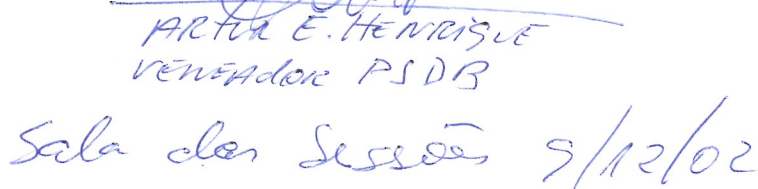 ARTUR E. HENRIQUE
VEREADOR PSDB
Sala das Sessões 9/12/02